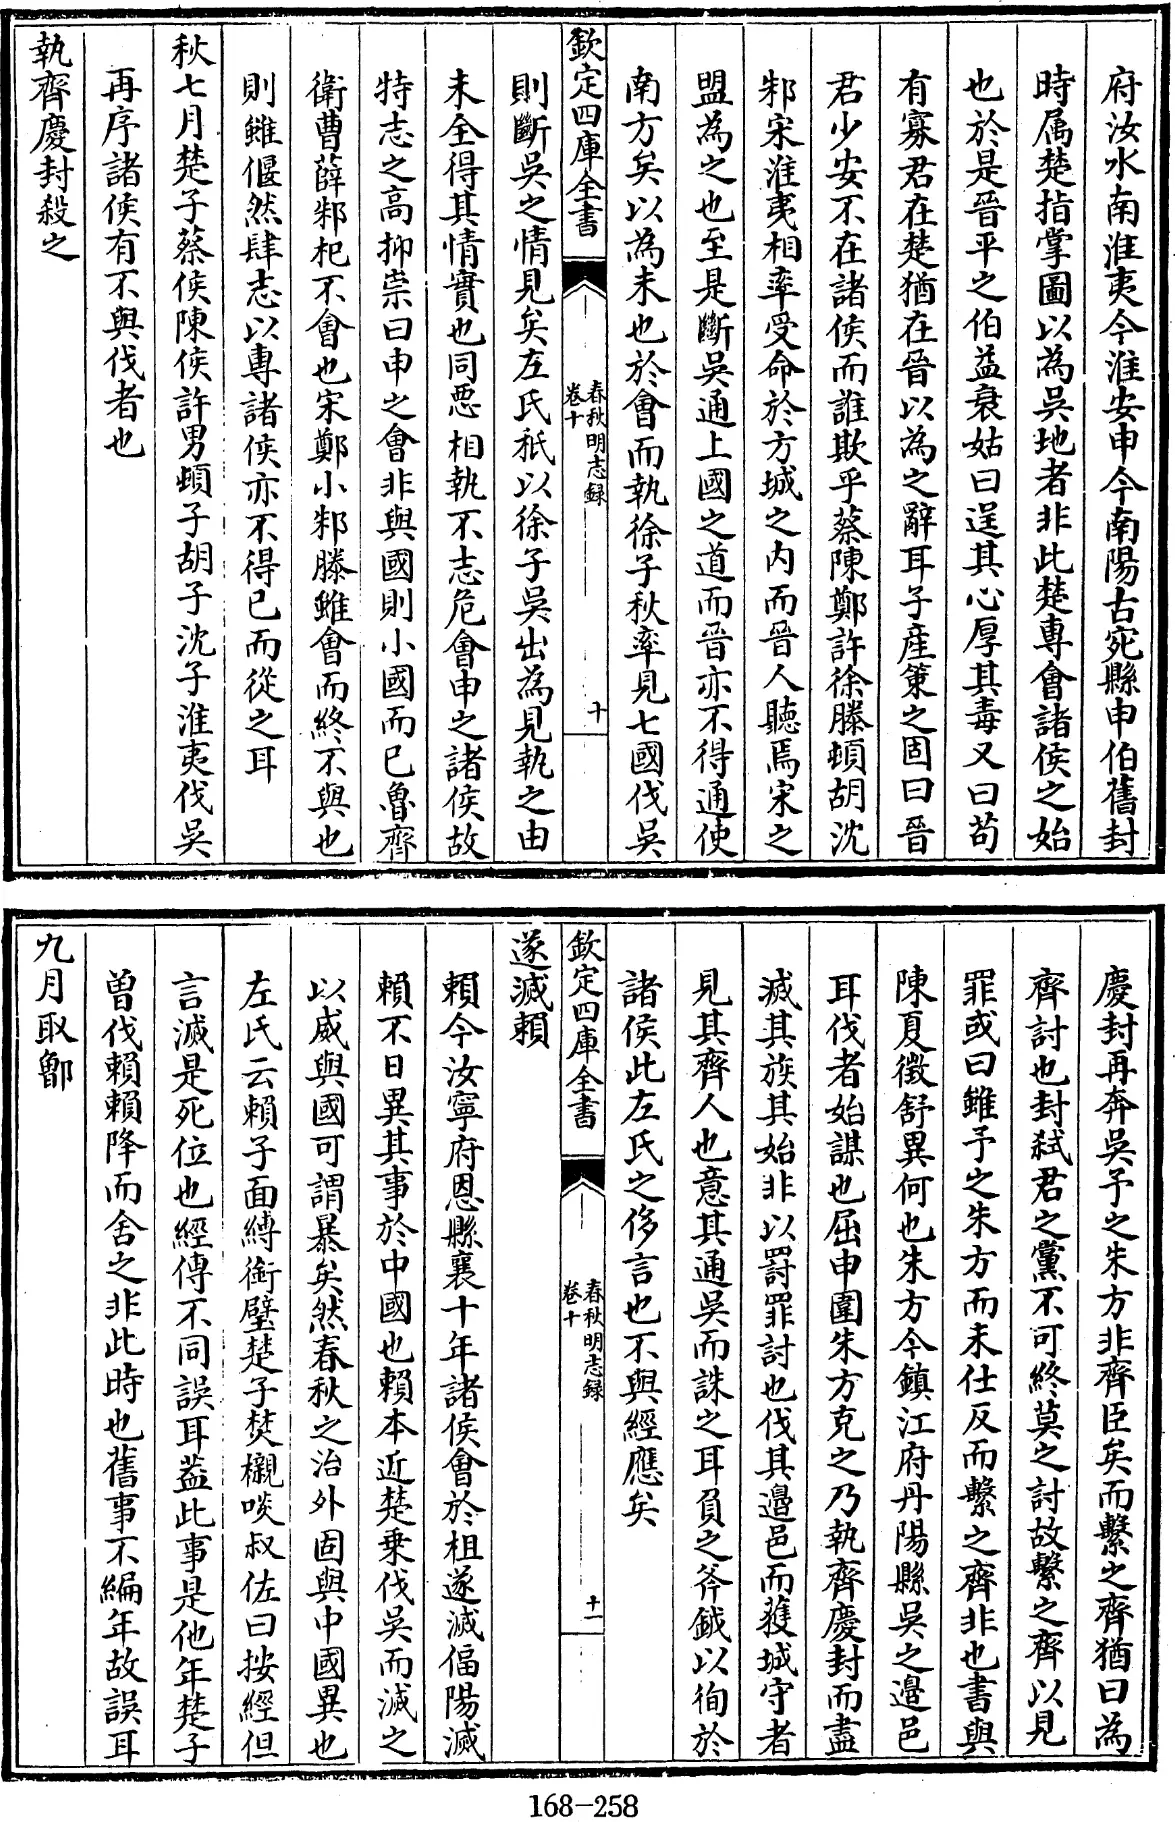 府汝水南淮夷今淮安申今南陽古宛縣申伯舊封
時属楚指掌圖以為吳地者非此楚專會諸侯之始
也於是晉平之伯益衰姑曰逞其心厚其毒又曰苟
有寡君在楚猶在晉以為之辭耳子産策之固曰晉
君少安不在諸侯而誰欺乎蔡陳鄭許徐滕頓胡沈
邾宋淮夷相率受命於方城之内而晉人聽焉宋之
盟為之也至是斷吳通上國之道而晉亦不得通使
南方矣以為未也於會而執徐子秋率見七國伐吳
欽定四庫全書
春秋明志録
卷十
十
則斷吳之情見矣左氏祇以徐子吳出為見執之由
未全得其情實也同惡相執不志危會申之諸侯故
特志之高抑崇曰申之會非與國則小國而已魯齊
衛曹薛邾杞不會也宋鄭小邾滕雖會而終不與也
則雖偃然肆志以專諸侯亦不得已而從之耳
秋七月楚子蔡侯陳侯許男頓子胡子沈子淮夷伐吳
再序諸侯有不與伐者也
執齊慶封殺之
慶封再奔吳予之朱方非齊臣矣而繫之齊猶曰為
齊討也封弑君之黨不可終莫之討故繫之齊以見
罪或曰雖予之朱方而未仕反而繫之齊非也書與
陳夏徵舒異何也朱方今鎮江府丹陽縣吳之邉邑
耳伐者始謀也屈申圍朱方克之乃執齊慶封而盡
滅其族其始非以罸罪討也伐其邉邑而獲城守者
見其齊人也意其通吳而誅之耳負之斧鉞以徇於
諸侯此左氏之侈言也不與經應矣
欽定四庫全書
春秋明志録
卷十
十一
遂滅賴
賴今汝寧府恩縣襄十年諸侯會於柤遂滅偪陽滅
賴不日異其事於中國也賴本近楚乗伐吳而滅之
以威與國可謂暴矣然春秋之治外固與中國異也
左氏云賴子面縛銜璧楚子焚櫬啖叔佐曰按經但
言滅是死位也經傳不同誤耳葢此事是他年楚子
曽伐賴賴降而舍之非此時也舊事不編年故誤耳
九月取鄫
168-258